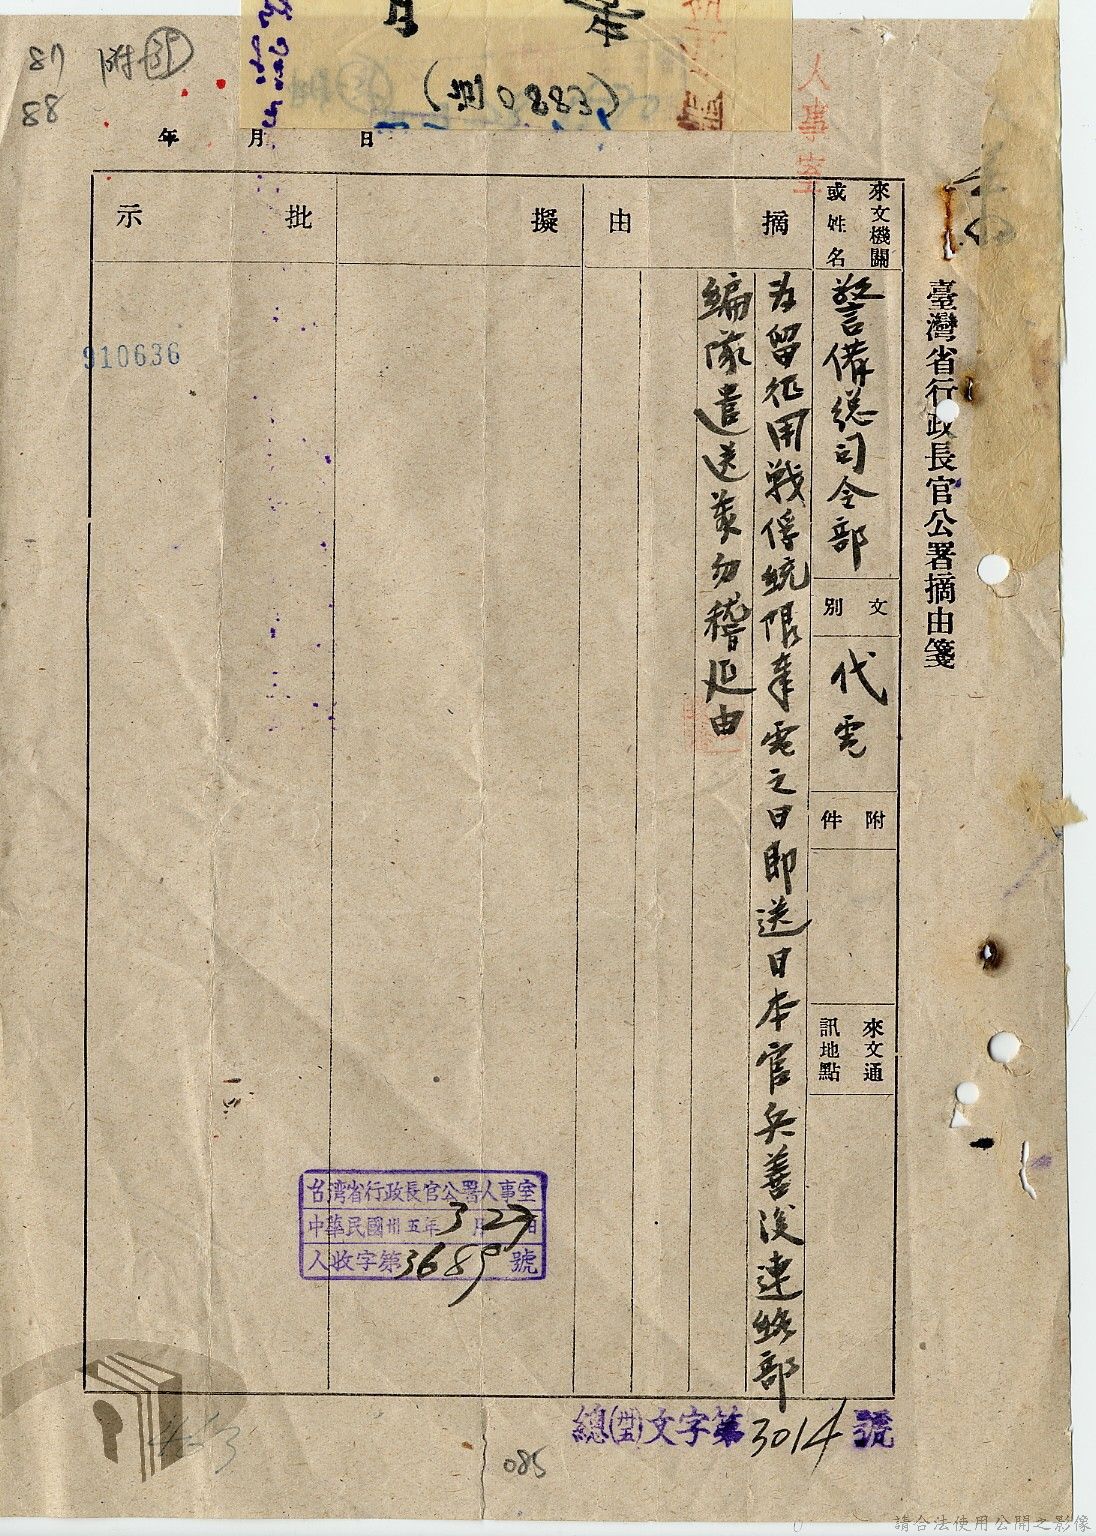 臺灣省行政長官公署摘由箋
來文機關
或姓名
警備総司令部
文別
代電
附件
來文通
訊地點
摘由
为留征用戦俘統限奉電之日即送日本官兵善後連絡部
編隊遣送萬勿稽延由
擬
批示
年 月 日
人事室
月
(湘0883)
87
88
附
910636
台湾省行政長官公署人事室
中華民國卅五年3月27日
人收字第3689號
總(卅五)文字第3014號
085
請合法使用公開之影像